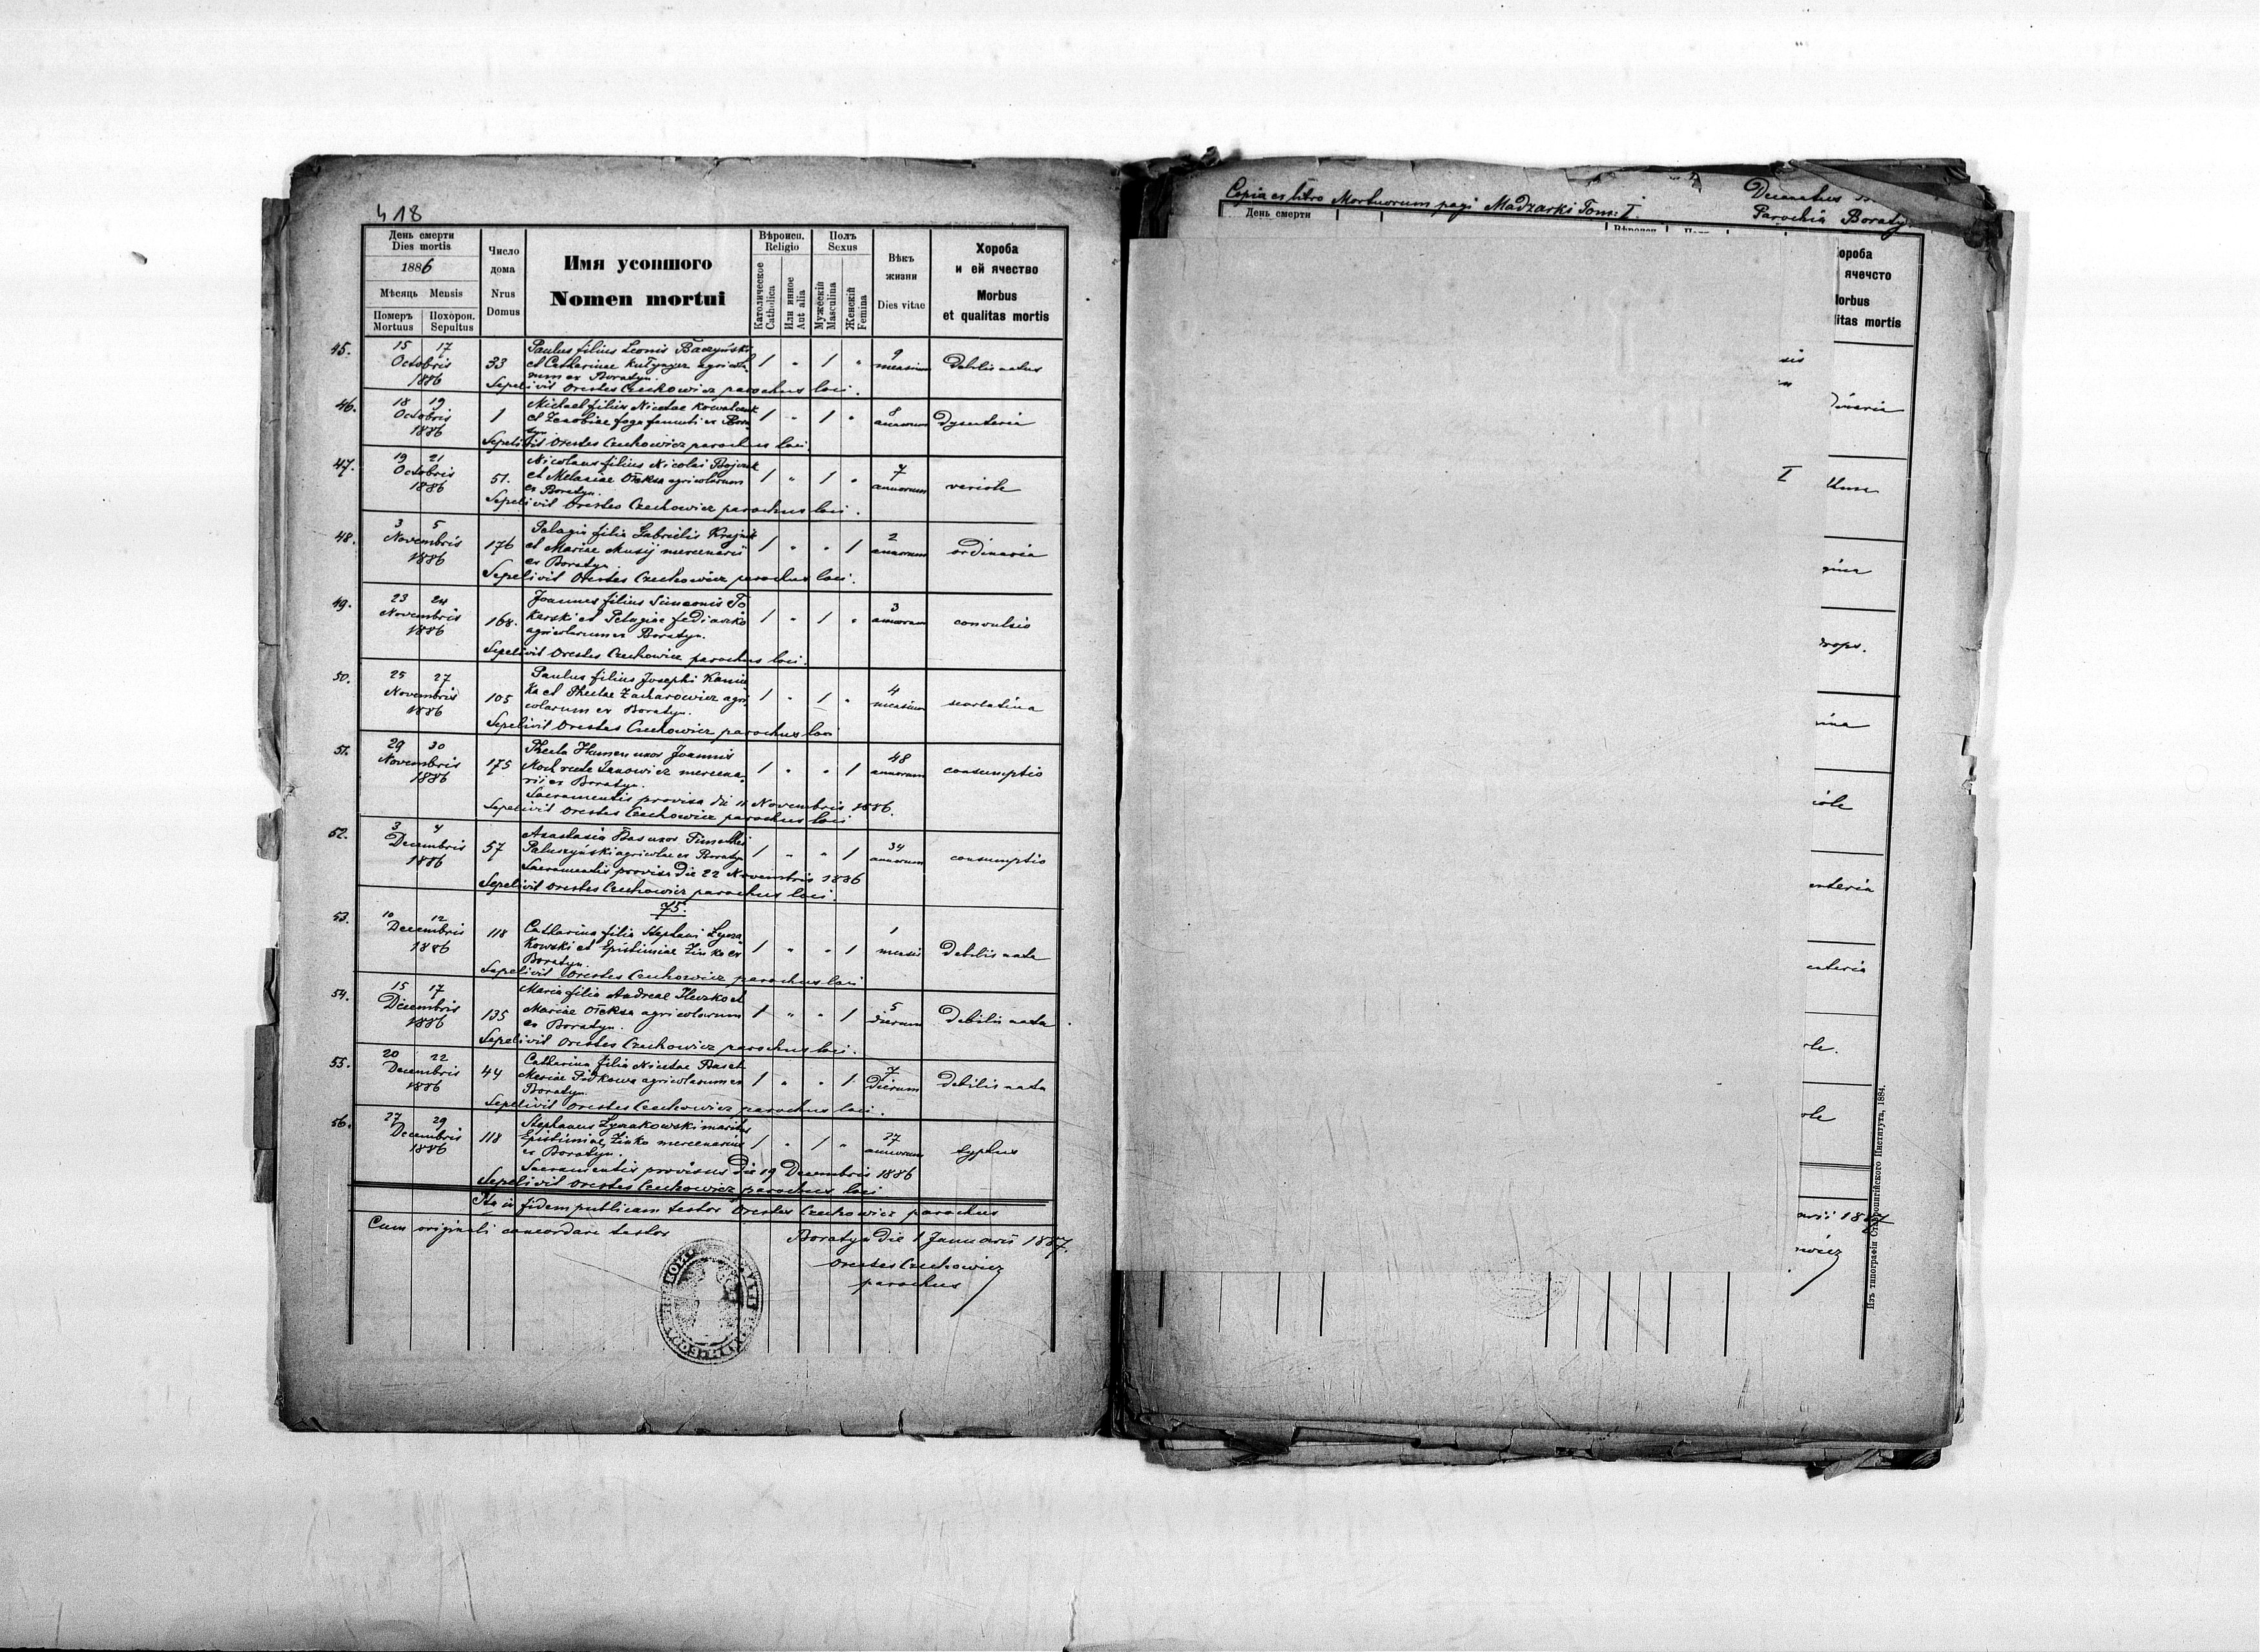 418
День смерти
Dies mortis
1886
Мѣсяць Mensis
Померъ Похорон.
Mortuus Sepultus
Число
дома
Nrus
Domus
Имя усопшого
Nomen mortui
Вѣроисп.
Religio
Католическое
Catholica
Или инное
Aut alia
Полъ
Sexus
Мужескій
Masculina
Женскій
Femina
Вѣкъ
жизни
Dies vitae
Хороба
и ей ячество
Morbus
et qualitas mortis
45. 15 17 Octobris 1886 33
Paulus filius Leonis Baczyński
et Catharinae agricola
rum ex Boratyn.
Sepelivit Orestes Czechowicz parochus loci.
1 " 1 " 9 mensium Debilis natus
46. 18 19 Octobris 1886 1
Michael filius Nicetae Kowalczuk
et Zenobiae famuli ex Bora
tyn
Sepelivit Orestes Czechowicz parochus loci.
1 " 1 " annorum Dysenteria
47. 19 21 Octobris 1886 51.
Nicolaus filius Nicolai Bojczuk
et Melaniae Ołeksa agricolarum
ex Boratyn.
Sepelivit Orestes Czechowicz parochus loci.
1 " 1 " 7 annorum variole
48. 3 5 Novembris 1886 176
Pelagia filia Gabrielis Krajnik
et Mariae Musij mercenarii
ex Boratyn.
Sepelivit Orestes Czechowicz parochus loci.
1 " " 1 2 annorum ordinaria
49. 23 24 Novembris 1886 168.
Joannes filius Simeonis To
karski et Pelagiae Fediaczko
agricolarum ex Boratyn.
Sepelivit Orestes Czechowicz parochus loci.
1 " 1 " 3 annorum convulsio
50. 25 27 Novembris 1886 105
Paulus filius Josephi
et Theclae Zacharowicz agri
colarum ex Boratyn.
Sepelivit Orestes Czechowicz parochus loci
1 " 1 " 4 mensium scarlatina
51. 29 30 Novembris 1886 175
Thecla Humen uxor Joannis
Koch recte Janowicz mercena
rii ex Boratyn.
Sacramentis provisa die 11 Novembris 1886.
Sepelivit Orestes Czechowicz parochus loci
1 " " 1 48 annorum consumptio
52. 3 4 Decembris 1886 57
Anastasia Bas uxor Timothei
Paluszyński agricolae ex Boratyn
Sacramentis provisa die 22 Novembris 1886
Sepelivit Orestes Czechowicz parochus loci.
1 " " 1 34 annorum consumptio
75.
53. 10 12 Decembris 1886 118
Catharina filia Stephani Łycza
kowski et Epistimiae Zinko ex
Boratyn.
Sepelivit Orestes Czechowicz parochus loci
1 " " 1 1 mensis Debilis nata
54. 15 17 Decembris 1886 135
Maria filia Andreae Ilczko et
Mariae Ołeksa agricolarum
ex Boratyn.
Sepelivit Orestes Czechowicz parochus loci.
1 " " 1 5 dierum Debilis nata
55. 20 22 Decembris 1886 44
Catharina filia Nicetae Bas et
Mariae Pidkowa agricolarum ex
Boratyn.
Sepelivit Orestes Czechowicz parochus loci.
1 " " 1 7 dierum debilis nata
56. 27 29 Decembris 1886 118
Stephanus Łyczakowski maritus
Epistimiae Zinko mercenarius
ex Boratyn.
Sacramentis provisus die 19 Decembris 1886
Sepelivit Orestes Czechowicz parochus loci
1 " 1 " 27 annorum typhus
Ita in fidem publicam testor Orestes Czechowicz parochus
Cum originali concordare testor
Boratyn die 1 Januarii 1887.
Orestes Czechowicz
parochus
Copia ex libro Mortuorum pagi Madzarki Tom: I.
Decanatus
Parochia Boratyn
День смерти
ороба
ячечсто
lorbus
litas mortis
I
rops.
iole
enteria
arii 1887
wicz
Изъ типографіи Ставропигійского Института, 1884.